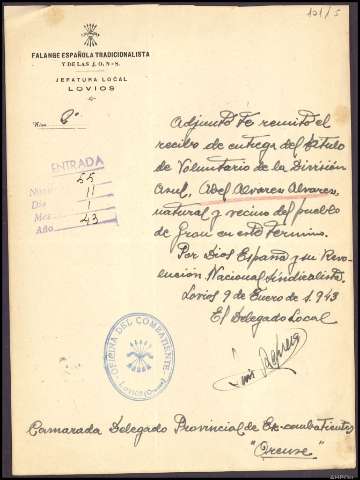 101/5
FALANGE ESPAÑOLA TRADICIONALISTA
Y DE LAS J. O. N - S.
JEFATURA LOCAL
LOVIOS
Núm. 6º
ENTRADA
Núm. 55
Día 11
Mes 1
Año 43
Adjunto te remito el
recibo de entrega del título
de Voluntario de la División
Azul, Abel Alvarez Alvarez,
natural y vecino del pueblo
de Grou en este termino.
Por Dios España y su Revo-
lución Nacional Sindicalista.
Lovios 9 de Enero de 1.943
El Delegado Local
Luis
OFICINA DEL COMBATIENTE
Camarada Delegado Provincial de Ex-combatientes
"Orense"
AHPOU